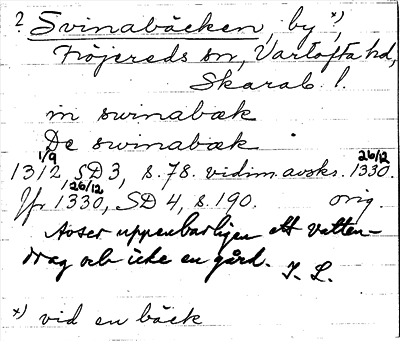 ? Svinabäcken, by *),
Fröjereds sn, Vartofta hd,
Skarab. l.
in swinabæk
De swinabæk
13 1/9 12 SD 3, s. 78. vidim. avskr. 26/12 1330.
Jfr 26/12 1330, SD 4, s. 190. orig.
Avser uppenbarligen ett vatten-
drag och icke en gård. I. L.
*) vid en bäck